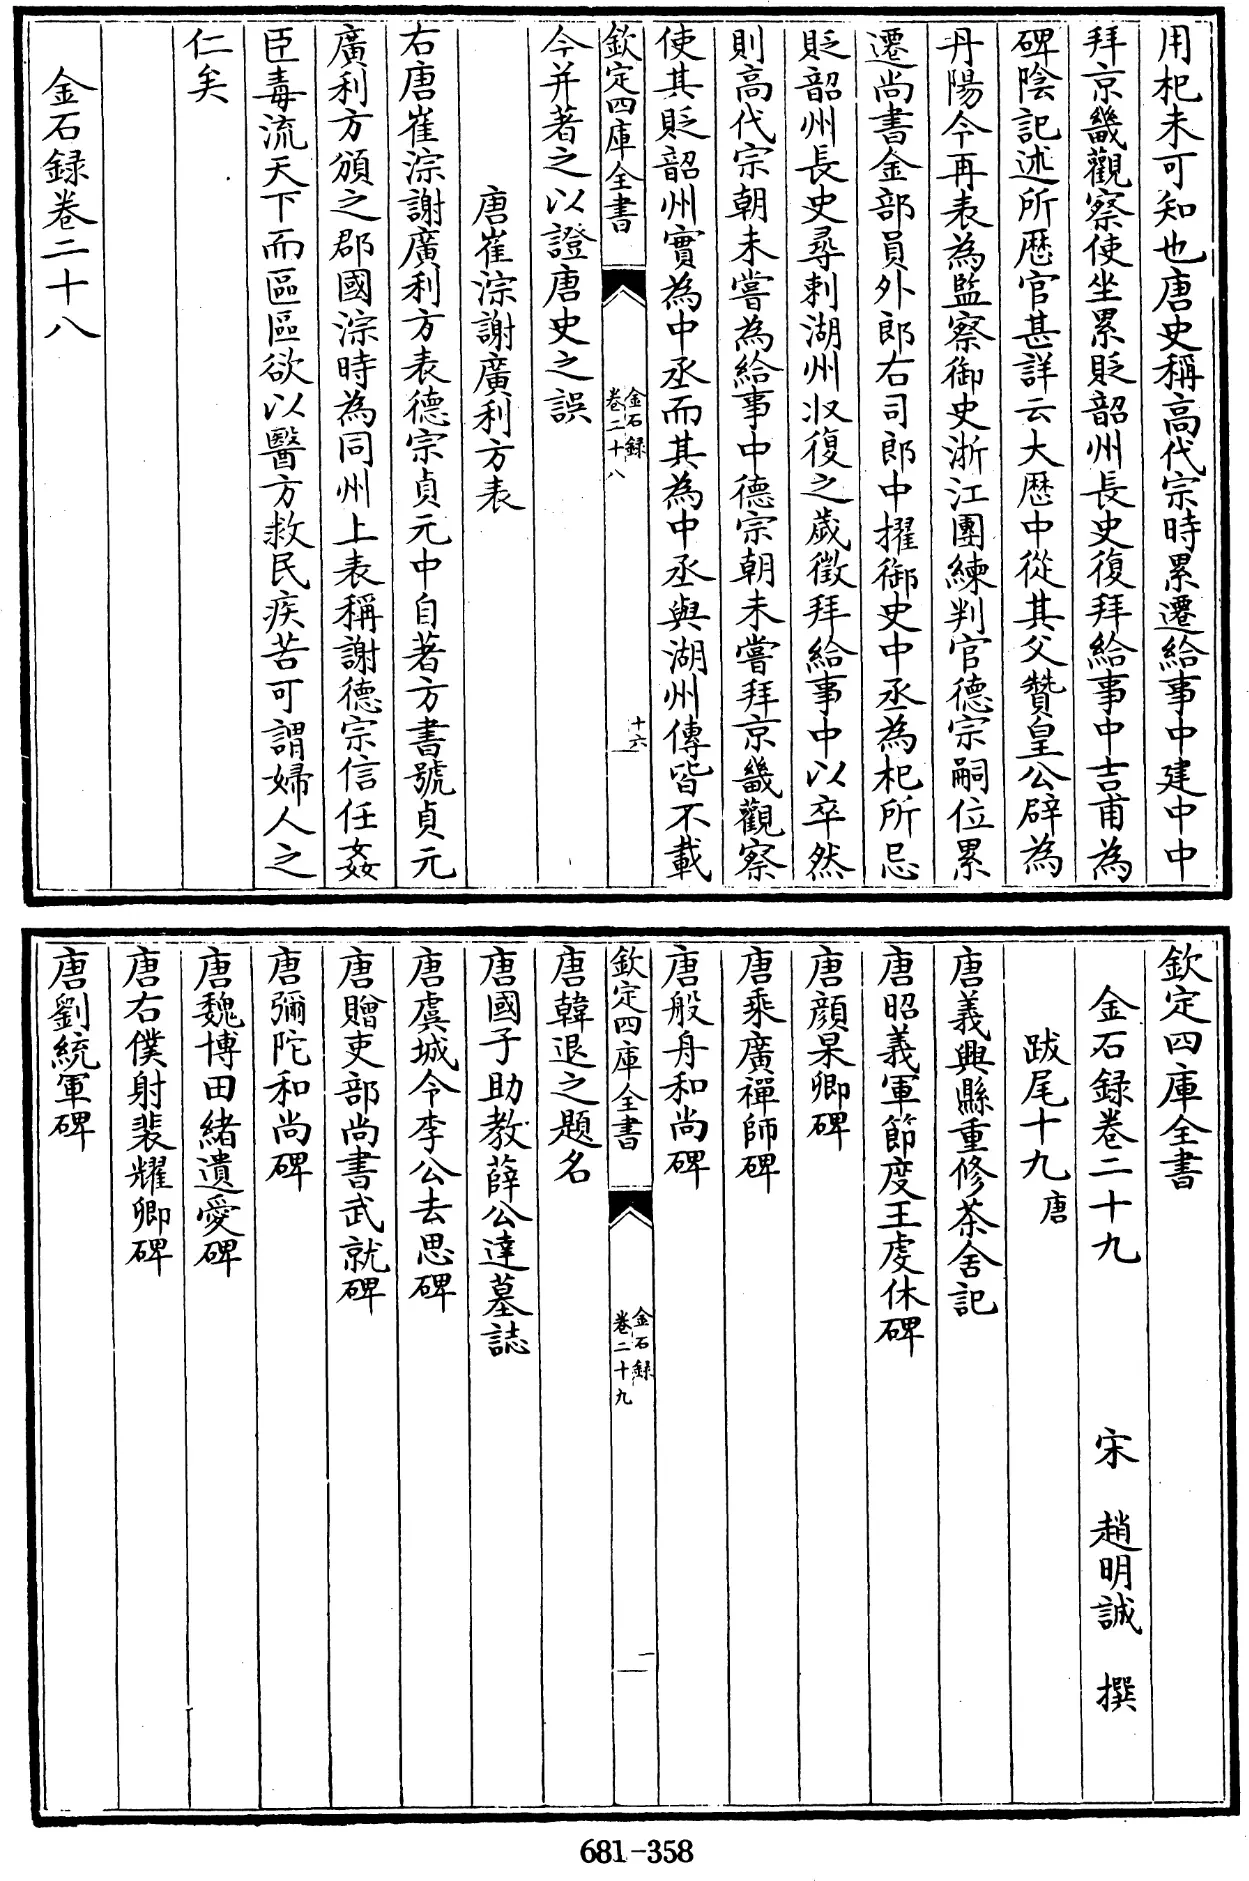 用杞未可知也唐史稱高代宗時累遷給事中建中中
拜京畿觀察使坐累貶韶州長史復拜給事中吉甫為
碑陰記述所歷官甚詳云大歷中從其父贊皇公辟為
丹陽令再表為監察御史浙江團練判官德宗嗣位累
遷尚書金部員外郎右司郎中擢御史中丞為杞所忌
貶韶州長史尋刺湖州収復之歲徵拜給事中以卒然
則高代宗朝未嘗為給事中德宗朝未嘗拜京畿觀察
使其貶韶州實為中丞而其為中丞與湖州傳皆不載
欽定四庫全書
金石録
卷二十八
十六
今并著之以證唐史之誤
唐崔淙謝廣利方表
右唐崔淙謝廣利方表德宗貞元中自著方書號貞元
廣利方頒之郡國淙時為同州上表稱謝德宗信任姦
臣毒流天下而區區欲以醫方救民疾苦可謂婦人之
仁矣
金石録卷二十八
欽定四庫全書
金石録卷二十九
宋 趙明誠 撰
跋尾十九唐
唐義興縣重修茶舍記
唐昭義軍節度王虔休碑
唐顔杲卿碑
唐乘廣禪師碑
唐般舟和尚碑
欽定四庫全書
金石録
卷二十九
一
唐韓退之題名
唐國子助教薛公達墓誌
唐虞城令李公去思碑
唐贈吏部尚書武就碑
唐彌陀和尚碑
唐魏博田緒遺愛碑
唐右僕射裴耀卿碑
唐劉統軍碑
681-358